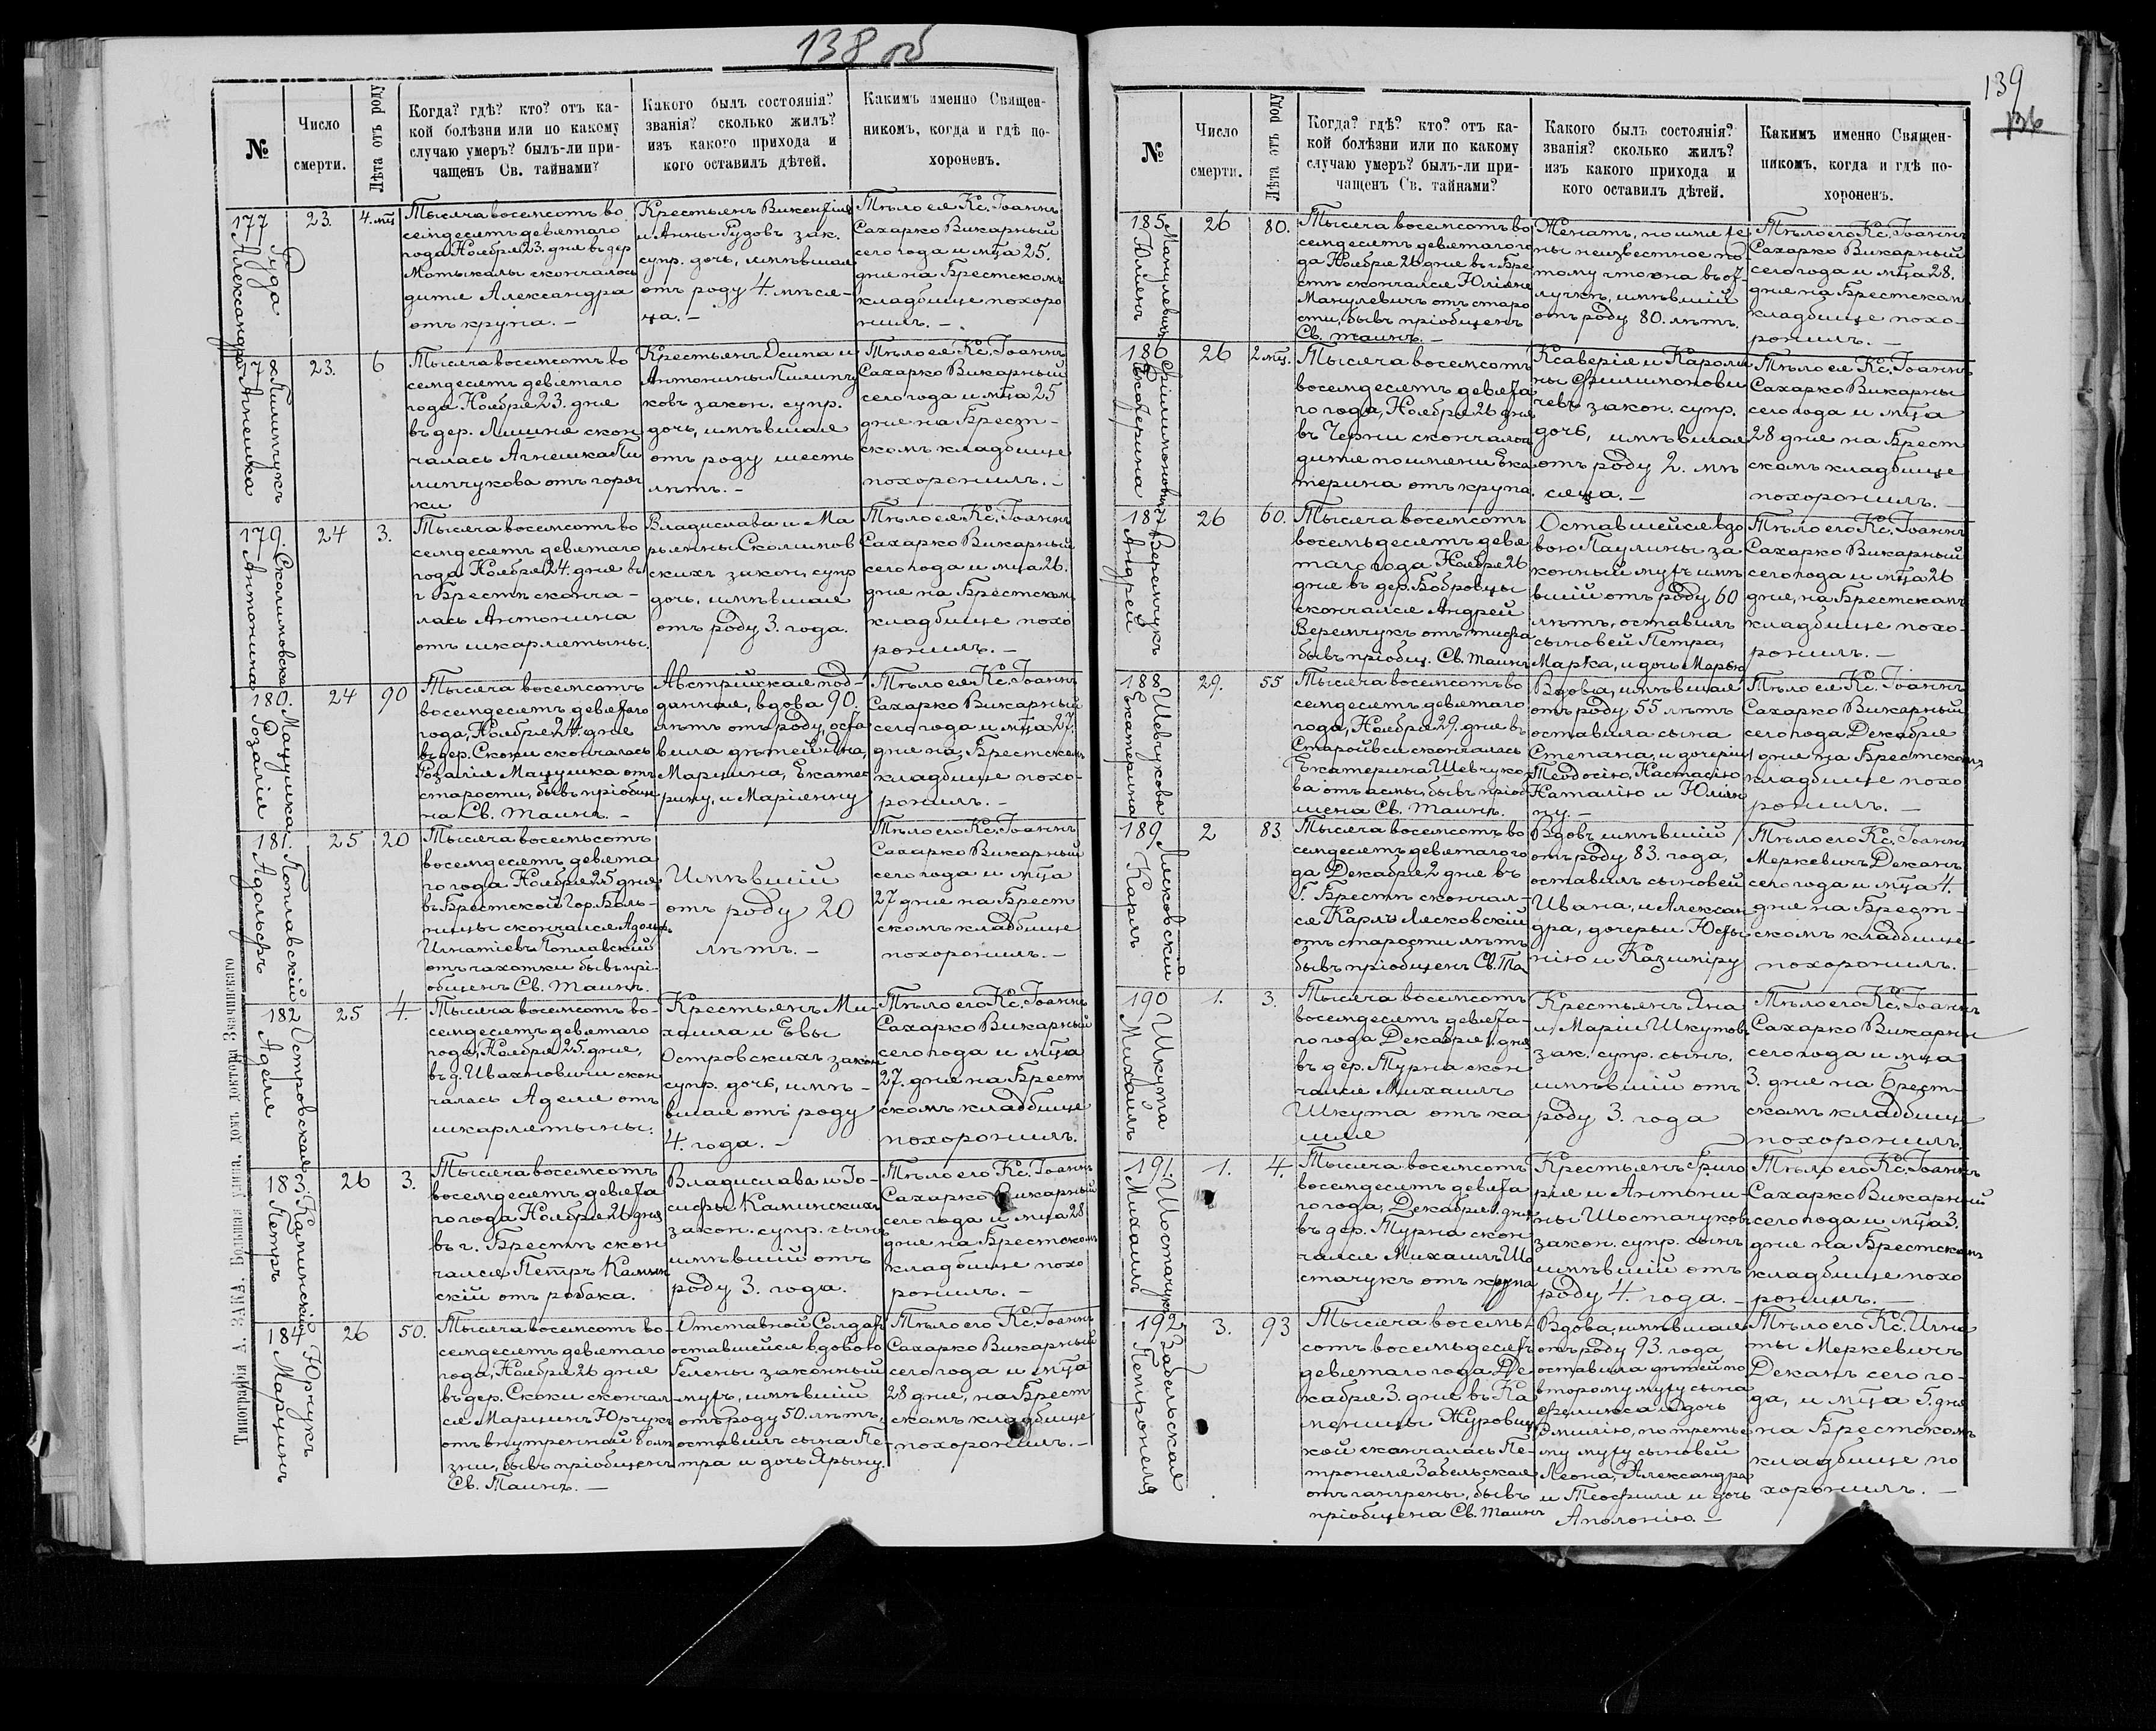 138 об
№
Число
смерти.
Лѣта отъ роду
Когда? гдѣ? кто? отъ ка-
кой болѣзни или по какому
случаю умеръ? былъ-ли при-
чащенъ Св. тайнами?
Какого былъ состоянія?
званія? сколько жилъ?
изъ какого прихода и
кого оставилъ дѣтей.
Какимъ именно Священ-
никомъ, когда и гдѣ по-
хороненъ.
177
Руда
Александра
23.
4. мц
Тысяча восемсотъ во
семдесятъ девятаго
года Ноября 23. дня въ дер
Мотыкалы скончалось
дитя Александра
отъ крупа. —
Крестьянъ Викентія
и Анны Рудовъ зак.
супр. дочь, имѣвшая
отъ роду 4. мѣся-
ца. —
Тѣло ея Кс. Іоаннъ
Сахарко Викарный
сего года и мца 25.
дня на Брестскомъ
кладбище похоро
нилъ. —
178
Пилипчукъ
Агнешка
23.
6
Тысяча восемсотъ во
семдесятъ девятаго
года Ноября 23. дня
въ дер. Лишня скон
чалась Агнешка Пи
липчукова отъ горяч
ки
Крестьянъ Осипа и
Антонины Пилипчу
ковъ закон. супр.
дочь, имѣвшая
отъ роду шесть
лѣтъ. —
Тѣло ея Кс. Іоаннъ
Сахарко Викарный
сего года и мца 25
дня на Брест-
скомъ кладбище
похоронилъ. —
179.
Сколимовска
Антонина
24
3.
Тысяча восемсотъ во
семдесятъ девятаго
года Ноября 24. дня въ
г Брестѣ сконча-
лась Антонина
отъ шкарлятыны.
Владислава и Ма
рьянны Сколимов
скихъ закон. супр
дочь, имѣвшая
отъ роду 3. года.
Тѣло ея Кс. Іоаннъ
Сахарко Викарный
сего года и мца 26.
дня на Брестскомъ
кладбище похо
ронилъ. —
180.
Мацушка
Розалія
24
90
Тысяча восемсотъ
восемдесятъ девятаго
года, Ноября 24. дня
въ дер. Скоки скончалась
Розалія Мацушка отъ
старости, бывъ пріобще
на Св. Таинъ. —
Австрійская под-
данная, вдова 90.
лѣтъ отъ роду, оста
вила дѣтей Яна,
Марцина, Екате
рину, и Маріянну
Тѣло ея Кс. Іоаннъ
Сахарко Викарный
сего года и мца 27.
дня на Брестскомъ
кладбище похо-
ронилъ. —
181.
Поплавскій
Адольфъ
25
20
Тысяча восемьсотъ
восемдесятъ девята
го года Ноября 25 дня
въ Брестской Гор. Боль-
ницы скончался Адольфъ
Игнатіевъ Поплавскій
отъ чахотки бывъ прі-
общенъ Св. Таинъ.
Имѣвшій
отъ роду 20
лѣтъ. —
Тѣло его Кс. Іоаннъ
Сахарко Викарный
сего года и мца
27 дня на Брест
скомъ кладбище
похоронилъ. —
182
Островская
Аделя
25
4.
Тысяча восемсотъ во-
семдесятъ девятаго
года, Ноября 25. дня,
въ д. Ивахновичи скон
чалась Аделя отъ
шкарлятыны.
Крестьянъ Ми-
хаила и Евы
Островскихъ закон
супр. дочь, имѣ-
вшая отъ роду
4. года. —
Тѣло его Кс. Іоаннъ
Сахарко Викарный
сего года и мца
27. дня на Брест
скомъ кладбище
похоронилъ.
183.
Каминскій
Петръ
26
3.
Тысяча восемсотъ
восемдесятъ девята
го года Ноября 26 дня
въ г. Брестѣ скон
чался Петръ Камин
скій отъ робака.
Владислава и Іо-
сифы Каминскихъ
закон. супр. сынъ
имѣвшій отъ
роду 3. года.
Тѣло его Кс. Іоаннъ
Сахарко Викарный
сего года и мца 28
дня на Брестскомъ
кладбище похо
ронилъ. —
184
Юрчукъ
Марцинъ
26
50.
Тысяча восемсотъ во-
семдесятъ девятаго
года, Ноября 26 дня
въ дер. Скоки скончал
ся Марцинъ Юрчукъ
отъ внутренней болѣ
зни, бывъ пріобщенъ
Св. Таинъ. —
Отставной Солдатъ
оставшейся вдовою
Гелены законный
мужъ, имѣвшій
отъ роду 50. лѣтъ,
оставилъ сына Пе-
тра и дочь Ярыну.
Тѣло его Кс. Іоаннъ
Сахарко Викарный
сего года и мца
28 дня, на Брест
скомъ кладбище
похоронилъ. —
Типографія А. ЗАКА, Большая улица, домъ доктора Званинскаго
139
№
Число
смерти.
Лѣта отъ роду
Когда? гдѣ? кто? отъ ка-
кой болѣзни или по какому
случаю умеръ? былъ-ли при-
чащенъ Св. тайнами?
Какого былъ состоянія?
званія? сколько жилъ?
изъ какого прихода и
кого оставилъ дѣтей.
Какимъ именно Священ-
никомъ, когда и гдѣ по-
хороненъ.
185.
Манулевичъ
Юліянъ
26
80.
Тысяча восемсотъ во
семдесятъ девятаго го
да Ноября 26 дня въ г. Бре
стѣ скончался Юліянъ
Манулевичъ отъ старо
сти, бывъ пріобщенъ
Св. таинъ. —
Женатъ, но имя же
ны неизвестное по
тому что она въ от
лучкѣ, имѣвшій
отъ роду 80. лѣтъ.
Тѣло его Кс. Іоаннъ
Сахарко Викарный
сего года и мца 28.
дня на Брестскомъ
кладбище похо-
ронилъ. —
186
Филимоновичъ
Екатерина
26
2 мц.
Тысяча восемсотъ
восемдесятъ девята
го года, Ноября 26 дня
въ Черни скончалось
дитя по имени Ека
терина отъ крупа.
Ксаверія и Кароли
ны Филимонови
чевъ закон. супр.
дочь, имѣвшая
отъ роду 2. мѣ
сяца. —
Тѣло ея Кс. Іоаннъ
Сахарко Викарны
сего года и мца
28 дня на Брест
скомъ кладбище
похоронилъ. —
187
Веремчукъ
Андрей
26
60.
Тысяча восемсотъ
восемьдесятъ девя
таго года Ноября 26
дня въ дер. Бобровцы
скончался Андрей
Веремчукъ отъ тифа
бывъ пріобщ. Св. Таинъ
Оставшейся вдо
вою Паулины за
конный мужъ имѣ
вшій отъ роду 60
лѣтъ, оставилъ
сыновей Петра,
Марка, и дочь Марью
Тѣло его Кс. Іоаннъ
Сахарко Викарный
сего года и мца 26
дня, на Брестскомъ
кладбище похо-
ронилъ. —
188
Шевчукова
Екатерина
29.
55
Тысяча восемсотъ во
семдесятъ девятаго
года, Ноября 29. дня въ
Старойвси скончалась
Екатерина Шевчуко
ва отъ асмы, бывъ пріоб
щена Св. Таинъ.
Вдова, имѣвшая
отъ роду 55 лѣтъ
оставила сына
Степана, и дочерий
Теодосію, Настасію
Наталію и Юлiян
ну. —
Тѣло ея Кс. Іоаннъ
Сахарко Викарный
сего года Декабря
1 дня на Брестскомъ
кладбище похо
ронилъ. —
189
Лясковскій
Карлъ
2
83
Тысяча восемсотъ во
семдесятъ девятаго го
да Декабря 2 дня въ
Г. Брестѣ скончал-
ся Карлъ Лясковскій
отъ старости лѣтъ
бывъ пріобщенъ Св. Та
Вдовъ имѣвшій
отъ роду 83. года,
оставилъ сыновей
Ивана, и Алексан
дра, дочерьи Юсты
нію и Казиміру
Тѣло его Кс. Іоаннъ
Меркевичъ Деканъ
сего года и мца 4.
дня на Брест-
скомъ кладбище
похоронилъ. —
190
Шкута
Михаилъ
1.
3.
Тысяча восемсотъ
восемдесятъ девята-
го года Декабря 1. дня
въ дер. Турна скон
чался Михаилъ
Шкута отъ ка
шля
Крестьянъ Яна
и Маріи Шкутовъ
зак. супр. сынъ,
имѣвшій отъ
роду 3. года
Тѣло его Кс. Іоаннъ
Сахарко Викарны
сего года и мца
3. дня на Брест-
скомъ кладбище
похоронилъ.
191.
Шостачукъ
Михаилъ
1.
4.
Тысяча восемсотъ
восемдесятъ девята
го года, Декабря 1. дня
въ дер. Турна скон
чался Михаилъ Шо
стачукъ отъ крупа
Крестьянъ Григо
рія и Антони-
ны Шостачуковъ
закон. супр. сынъ
имѣвшій отъ
роду 4. года. —
Тѣло его Кс. Іоаннъ
Сахарко Викарный
сего года и мца 3.
дня на Брестскомъ
кладбище похо
ронилъ. —
192
Забельская
Петронеля
3.
93
Тысяча восемь-
сотъ восемьдесятъ
девятаго года Де
кабря 3. дня въ Ка
меницы Журовец
кой скончалась Пе-
тронеля Забельская
отъ гангрены, бывъ
пріобщена Св. Таинъ
Вдова, имѣвшая
отъ роду 93. года
оставила дѣтей по
второму мужу сына
Феликса и дочь
Эмилію, по третье
му мужу сыновей
Леона, Александра
и Теофиля и дочь
Аполонію. —
Тѣло его Кс. Игна
ты Меркевичъ
Деканъ сего го-
да, и мца 5. дня
на Брестскомъ
кладбище по
хоронилъ. —